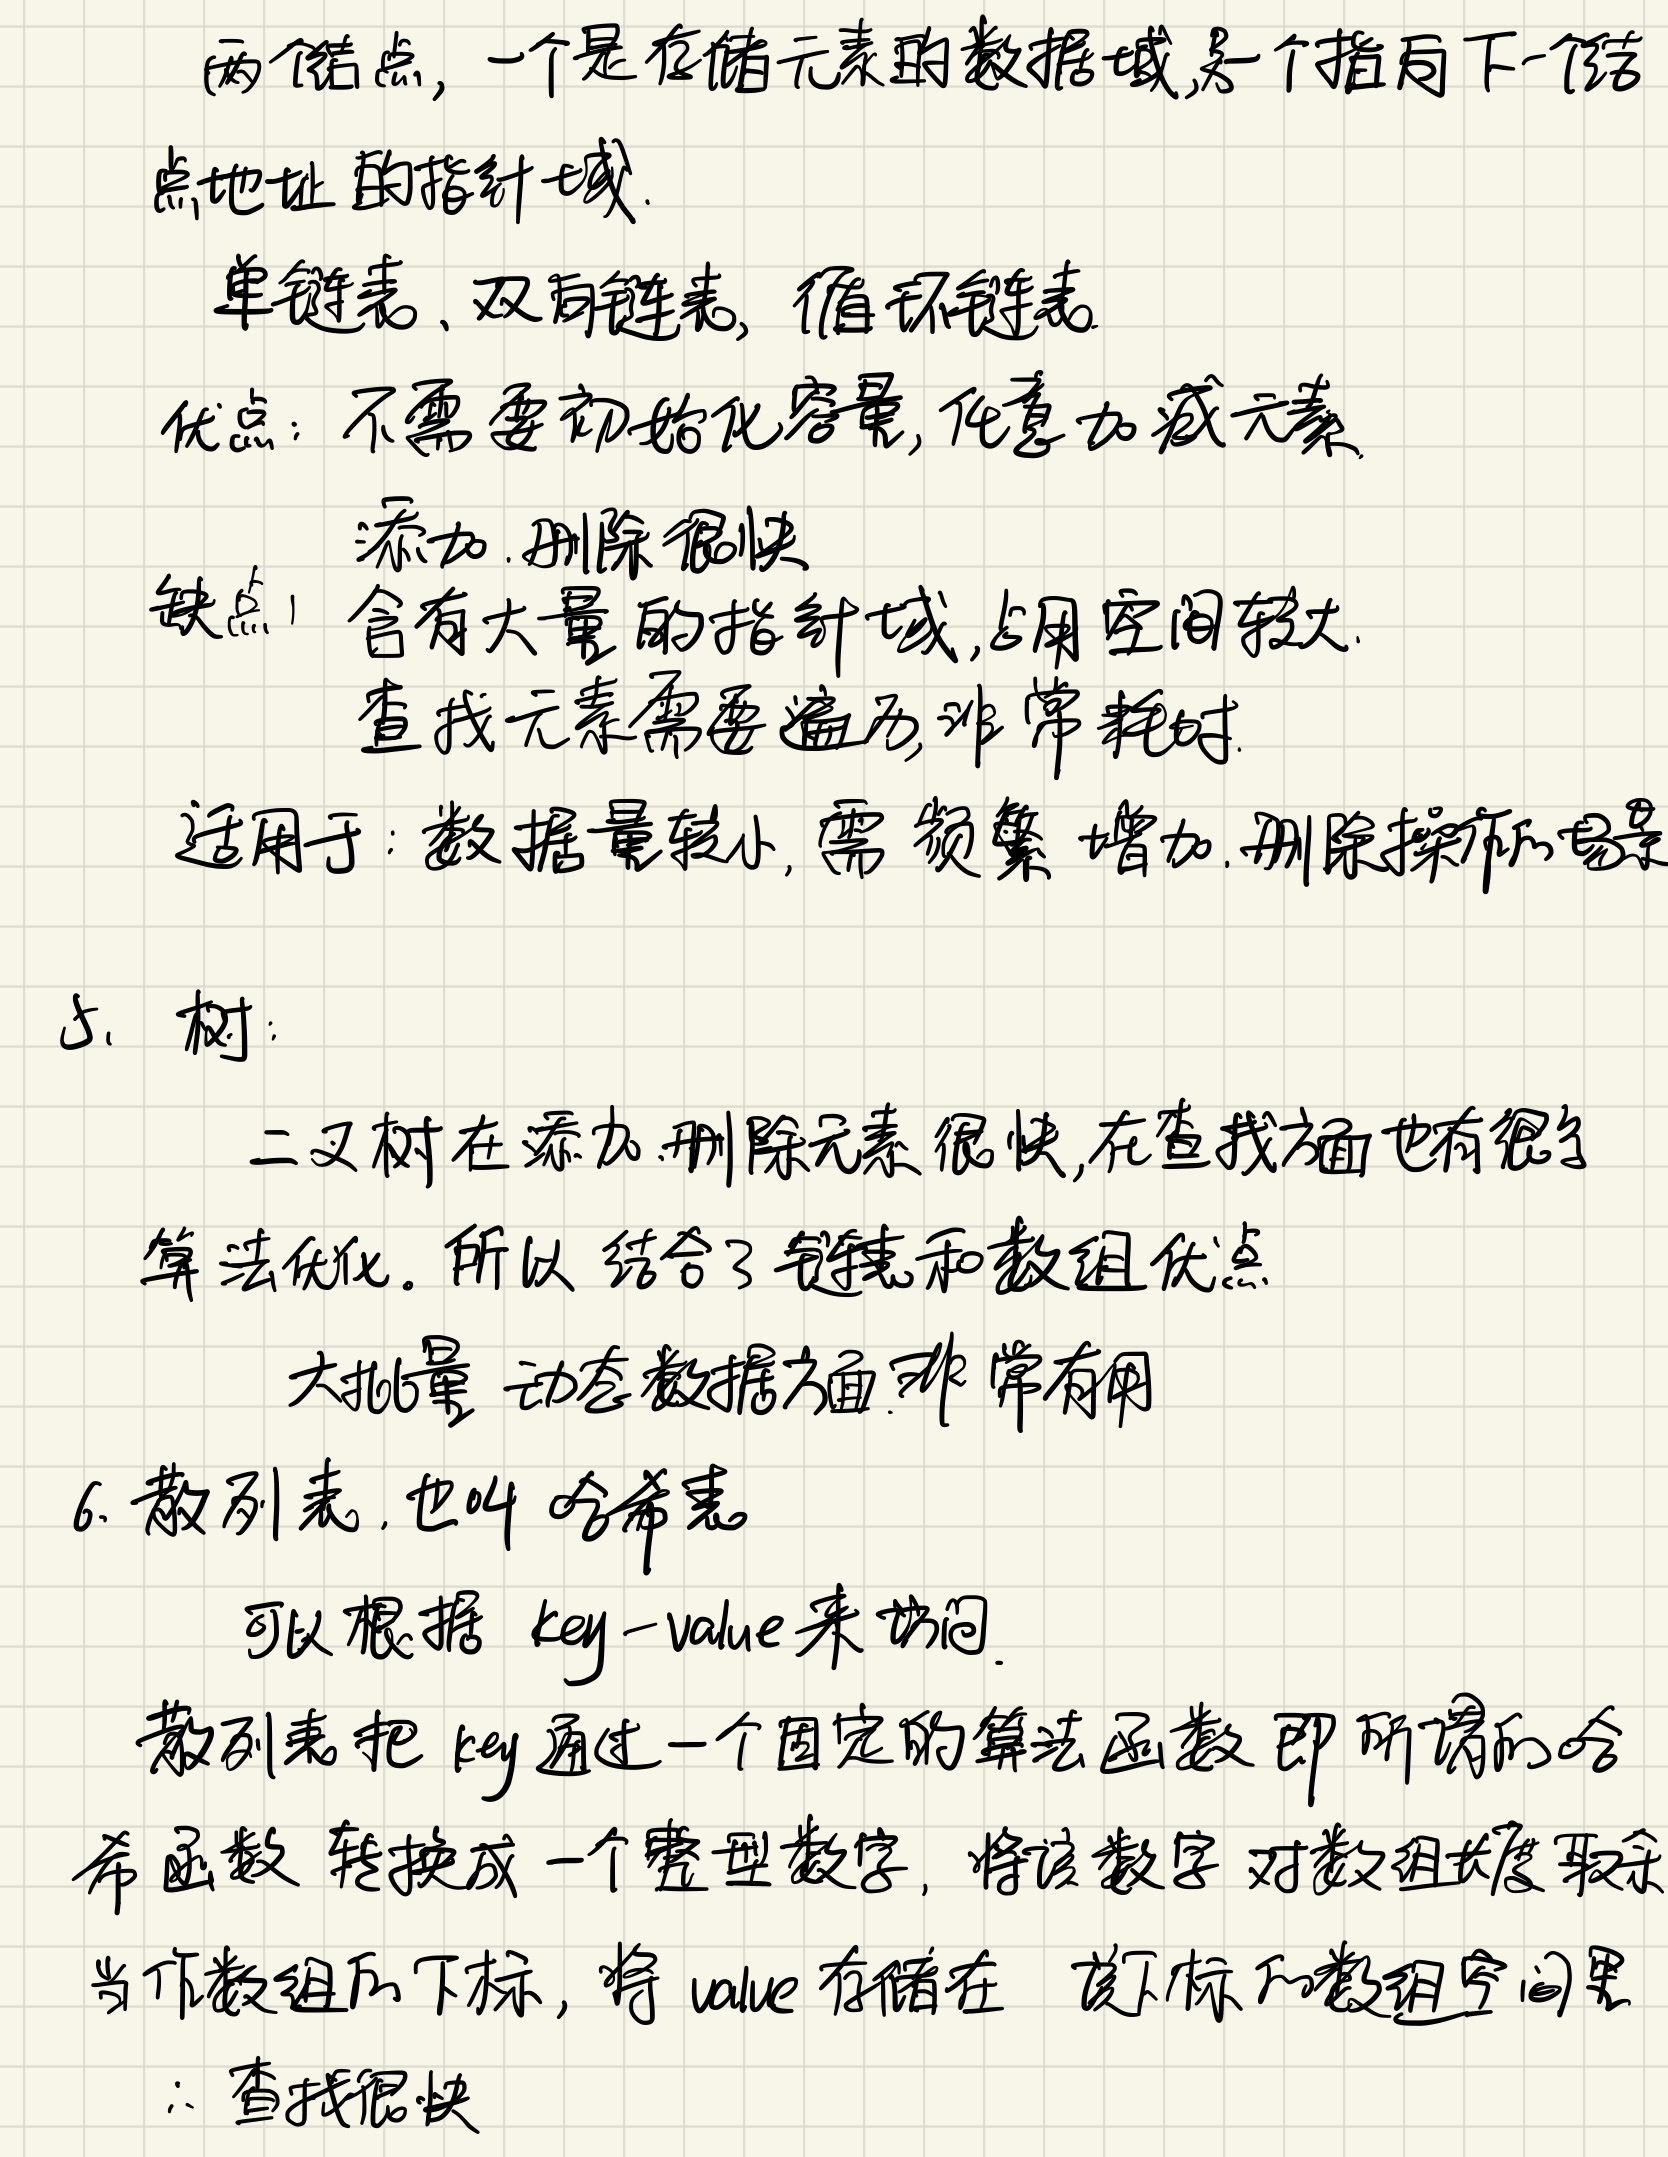 两个结点，一个是存储元素的数据域,另一个指向下一个结
点地址的指针域.
单链表、双向链表, 循环链表.
优点：不需要初始化容量,任意加减元素.
添加.删除很快
缺点: 含有大量的指针域,占用空间较大.
查找元素需要遍历,非常耗时.
适用于：数据量较小,需频繁增加.删除操作的场景
5. 树:
二叉树在添加.删除元素很快,在查找方面也有很多
算法优化。所以结合了链表和数组优点
大批量动态数据方面.非常有用
6. 散列表.也叫哈希表
可以根据 key-value来访问.
散列表把key通过一个固定的算法函数即所谓的哈
希函数转换成一个整型数字, 将该数字对数组长度取余
当作数组的下标, 将value存储在 该下标的数组空间里
∴ 查找很快